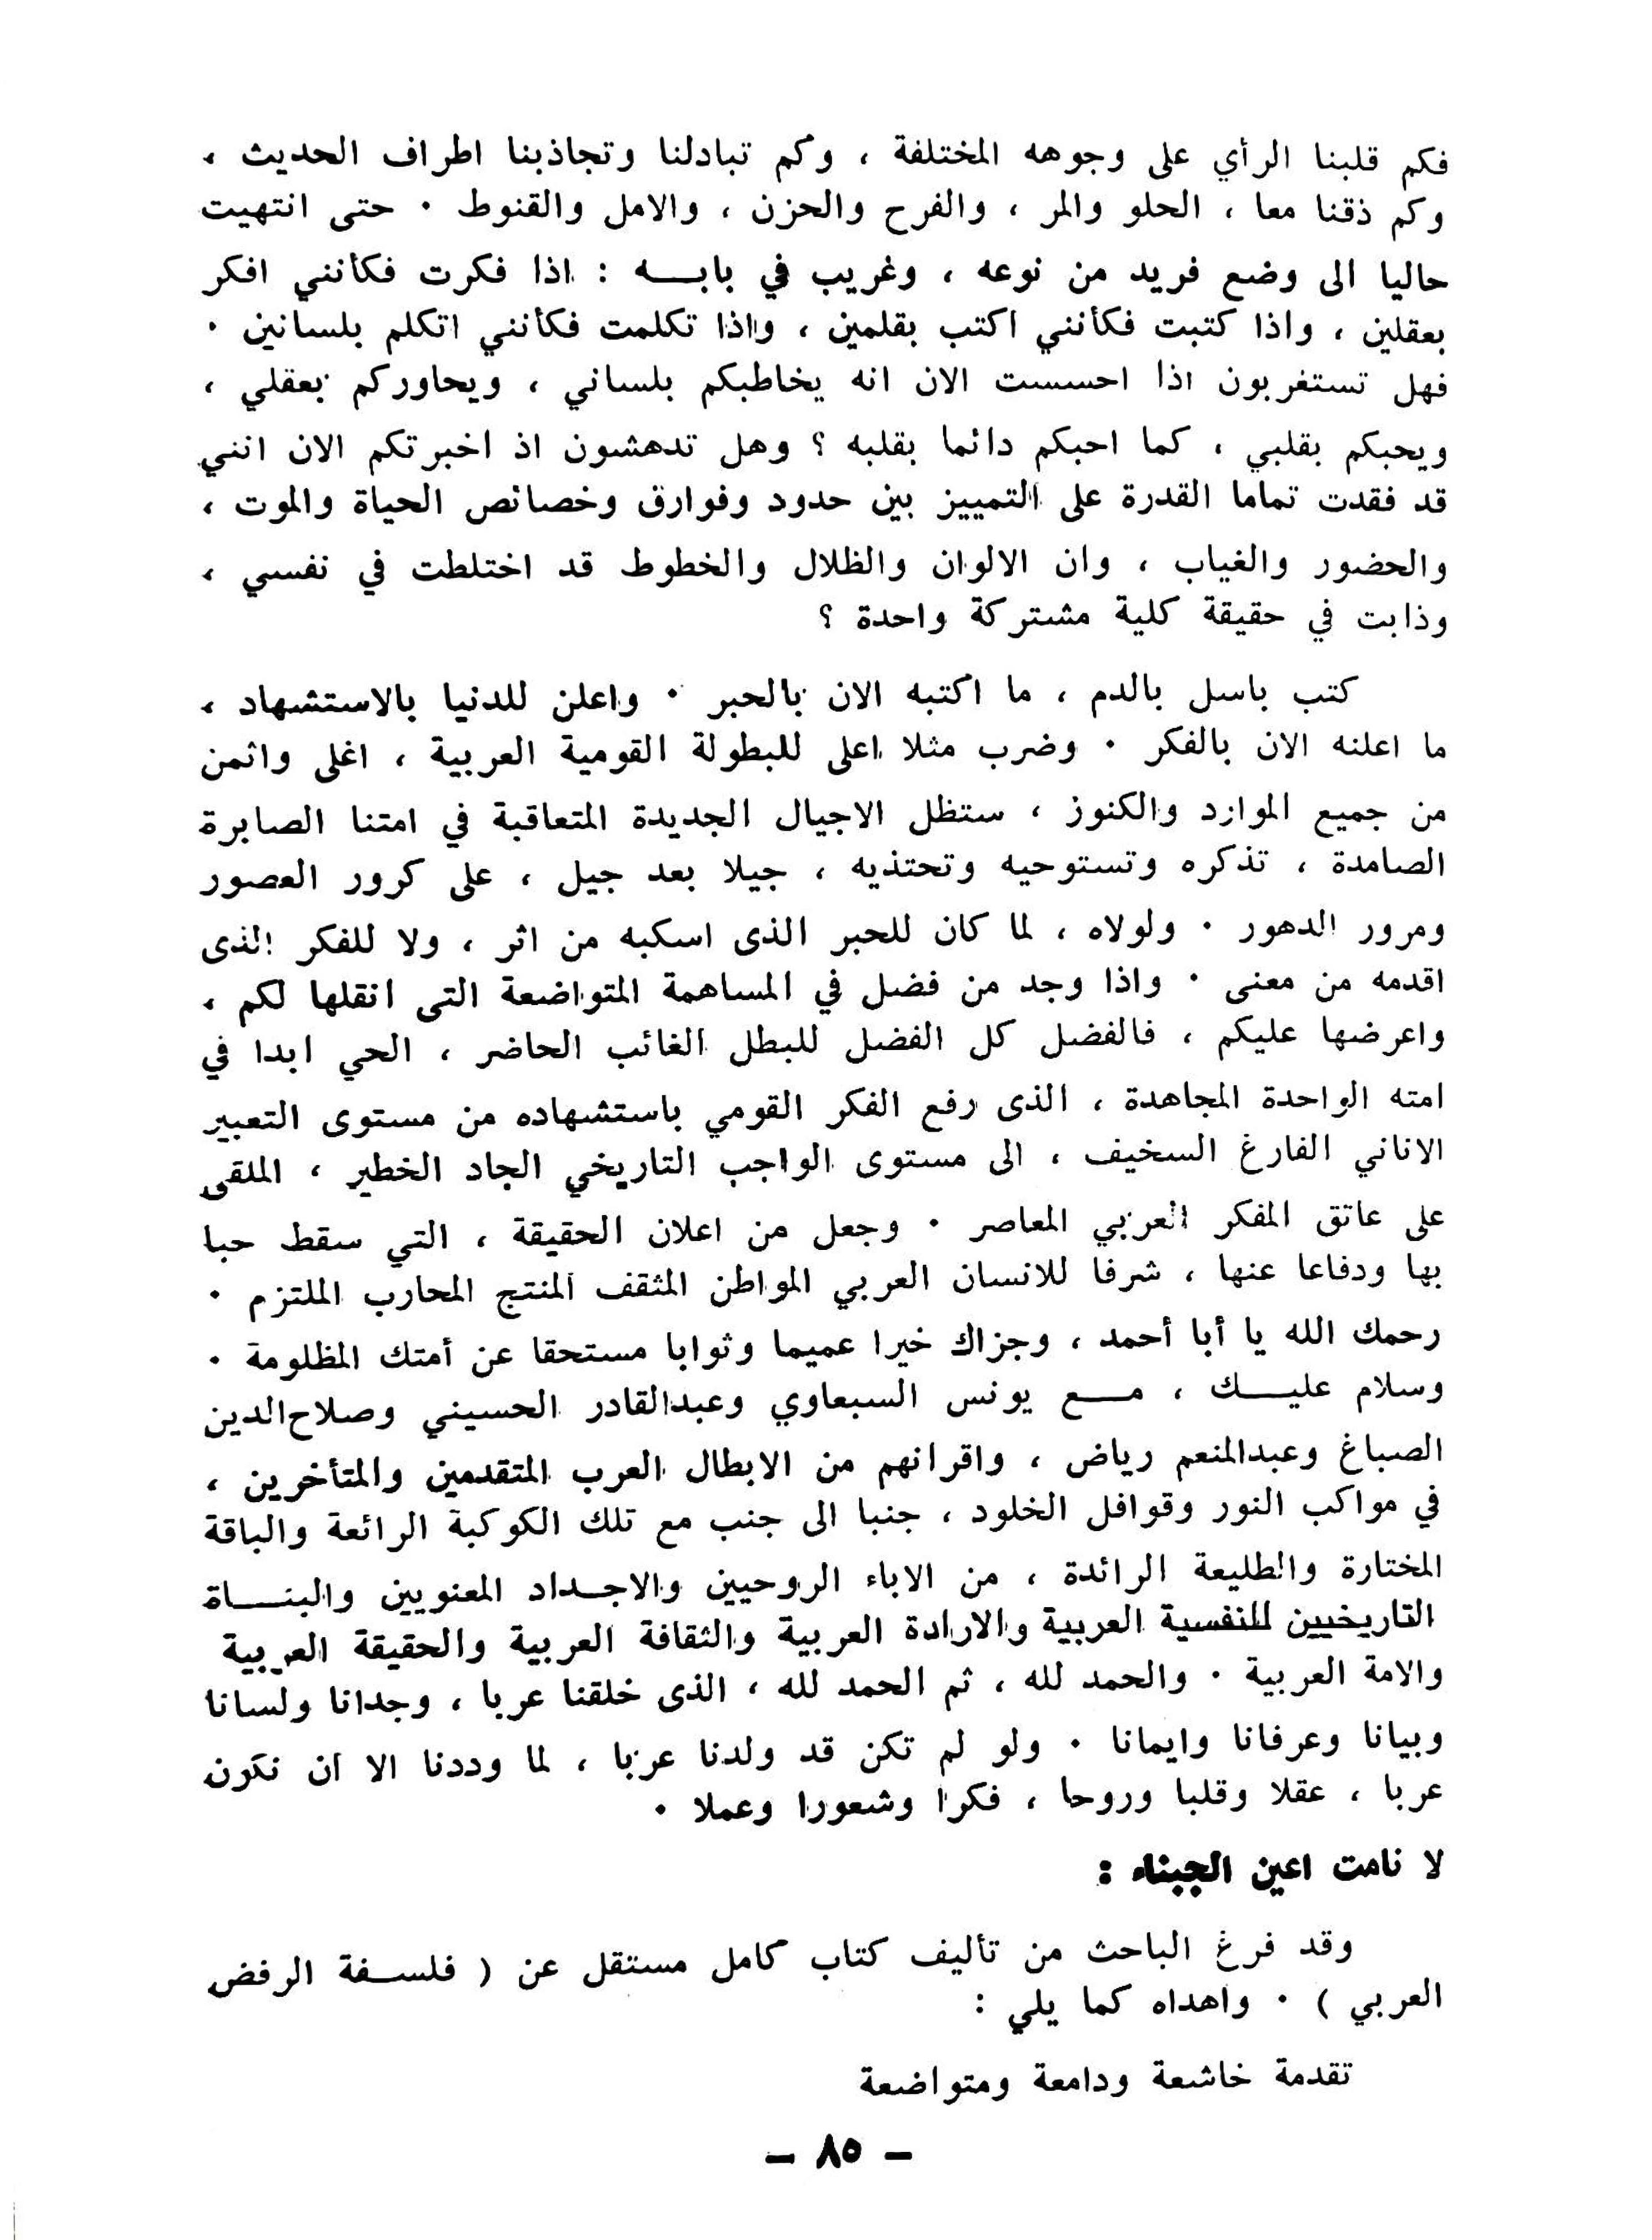 فكم قلبنا الرأي على وجوهه المختلفة ، وكم تبادلنا وتجاذبنا اطراف الحديث ،
وكم ذقنا معا ، الحلو والمر ، والفرح والحزن ، والامل والقنوط . حتى انتهيت
حاليا الى وضع فريد من نوعه ، وغريب في بابـــه : اذا فكرت فكأنني افكر
بعقلين ، واذا كتبت فكأنني اكتب بقلمين ، واذا تكلمت فكأنني اتكلم بلسانين .
فهل تستغربون اذا احسست الان انه يخاطبكم بلساني ، ويحاوركم بعقلي ،
ويحبكم بقلبي ، كما احبكم دائما بقلبه ؟ وهل تدهشون اذ اخبرتكم الان انني
قد فقدت تماما القدرة على التمييز بين حدود وفوارق وخصائص الحياة والموت ،
والحضور والغياب ، وان الالوان والظلال والخطوط قد اختلطت في نفسي ،
وذابت في حقيقة كلية مشتركة واحدة ؟
كتب باسل بالدم ، ما اكتبه الان بالحبر . واعلن للدنيا بالاستشهاد ،
ما اعلنه الان بالفكر . وضرب مثلا اعلى للبطولة القومية العربية ، اغلى واثمن
من جميع الموارد والكنوز ، ستظل الاجيال الجديدة المتعاقبة في امتنا الصابرة
الصامدة ، تذكره وتستوحيه وتحتذيه ، جيلا بعد جيل ، على كرور العصور
ومرور الدهور . ولولاه ، لما كان للحبر الذى اسكبه من اثر ، ولا للفكر الذى
اقدمه من معنى . واذا وجد من فضل في المساهمة المتواضعة التى انقلها لكم ،
واعرضها عليكم ، فالفضل كل الفضل للبطل الغائب الحاضر ، الحي ابدا في
امته الواحدة المجاهدة ، الذى رفع الفكر القومي باستشهاده من مستوى التعبير
الاناني الفارغ السخيف ، الى مستوى الواجب التاريخي الجاد الخطير ، الملقى
على عاتق المفكر العربي المعاصر . وجعل من اعلان الحقيقة ، التي سقط حبا
بها ودفاعا عنها ، شرفا للانسان العربي المواطن المثقف المنتج المحارب الملتزم .
رحمك الله يا أبا أحمد ، وجزاك خيرا عميما وثوابا مستحقا عن أمتك المظلومة .
وسلام عليـــك ، مـــع يونس السبعاوي وعبدالقادر الحسيني وصلاح‌الدين
الصباغ وعبدالمنعم رياض ، واقرانهم من الابطال العرب المتقدمين والمتأخرين ،
في مواكب النور وقوافل الخلود ، جنبا الى جنب مع تلك الكوكبة الرائعة والباقة
المختارة والطليعة الرائدة ، من الاباء الروحيين والاجـداد المعنويين والبنـــاة
التاريخيين للنفسية العربية والارادة العربية والثقافة العربية والحقيقة العربية
والامة العربية . والحمد لله ، ثم الحمد لله ، الذى خلقنا عربا ، وجدانا ولسانا
وبيانا وعرفانا وايمانا . ولو لم تكن قد ولدنا عربا ، لما وددنا الا ان نكون
عربا ، عقلا وقلبا وروحا ، فكرا وشعورا وعملا .
لا نامت اعين الجبناء :
وقد فرغ الباحث من تأليف كتاب كامل مستقل عن ( فلسـفة الرفض
العربي ) . واهداه كما يلي :
تقدمة خاشعة ودامعة ومتواضعة
– ٨٥ –